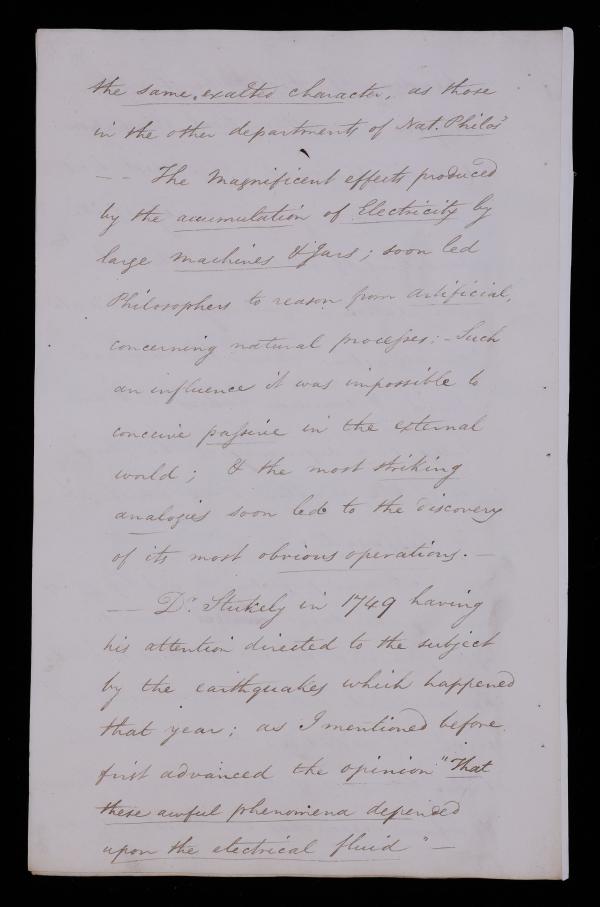 the same exalted character, as those
in the other departments of Nat. Philos^y
—— The Magnificent effects produced
by the accumulation of Electricity by
large machines & Jars; soon led
Philosophers to reason from artificial,
concerning natural processes:- Such
an influence it was impossible to
conceive passive in the external
world; & the most striking
analogies soon led to the discovery
of its most obvious operations. —
—— Dr. Stukely in 1749 having
his attention directed to the subject
by the earthquakes which happened
that year; as I mentioned before
first advanced the opinion "That
these awful phenomena depended
upon the electrical fluid" —